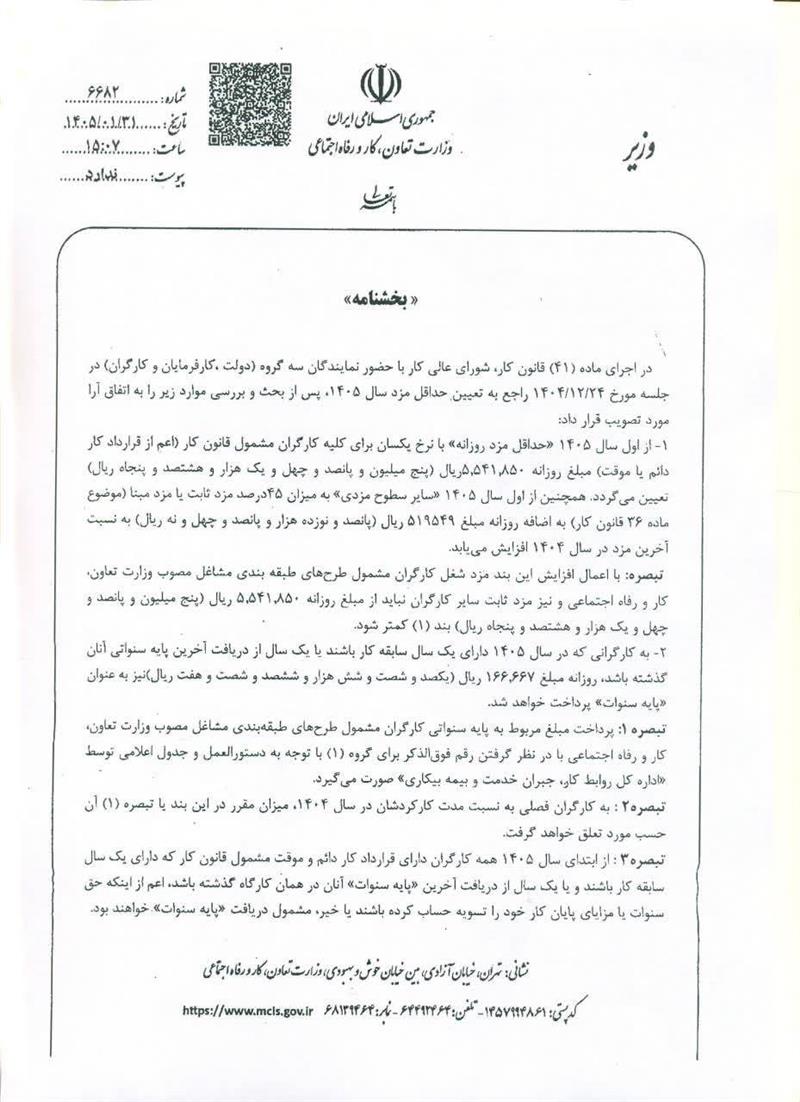 شماره: ۶۶۸۲
تاریخ: ۱۴۰۵/۰۱/۳۱
ساعت: ۱۵:۰۷
پیوست: ندارد
جمهوری اسلامی ایران
وزارت تعاون، کار و رفاه اجتماعی
وزیر
باسمه تعالی
«بخشنامه»
در اجرای ماده (۴۱) قانون کار، شورای عالی کار با حضور نمایندگان سه گروه (دولت ،کارفرمایان و کارگران) در
جلسه مورخ ۱۴۰۴/۱۲/۲۴ راجع به تعیین حداقل مزد سال ۱۴۰۵، پس از بحث و بررسی موارد زیر را به اتفاق آرا
مورد تصویب قرار داد:
۱- از اول سال ۱۴۰۵ «حداقل مزد روزانه» با نرخ یکسان برای کلیه کارگران مشمول قانون کار (اعم از قرارداد کار
دائم یا موقت) مبلغ روزانه ۵,۵۴۱,۸۵۰ریال (پنج میلیون و پانصد و چهل و یک هزار و هشتصد و پنجاه ریال)
تعیین می‌گردد. همچنین از اول سال ۱۴۰۵ «سایر سطوح مزدی» به میزان ۴۵درصد مزد ثابت یا مزد مبنا (موضوع
ماده ۳۶ قانون کار) به اضافه روزانه مبلغ ۵۱۹۵۴۹ ریال (پانصد و نوزده هزار و پانصد و چهل و نه ریال) به نسبت
آخرین مزد در سال ۱۴۰۴ افزایش می‌یابد.
تبصره: با اعمال افزایش این بند مزد شغل کارگران مشمول طرح‌های طبقه بندی مشاغل مصوب وزارت تعاون،
کار و رفاه اجتماعی و نیز مزد ثابت سایر کارگران نباید از مبلغ روزانه ۵,۵۴۱,۸۵۰ ریال (پنج میلیون و پانصد و
چهل و یک هزار و هشتصد و پنجاه ریال) بند (۱) کمتر شود.
۲- به کارگرانی که در سال ۱۴۰۵ دارای یک سال سابقه کار باشند یا یک سال از دریافت آخرین پایه سنواتی آنان
گذشته باشد، روزانه مبلغ ۱۶۶,۶۶۷ ریال (یکصد و شصت و شش هزار و ششصد و شصت و هفت ریال)نیز به عنوان
«پایه سنوات» پرداخت خواهد شد.
تبصره ۱: پرداخت مبلغ مربوط به پایه سنواتی کارگران مشمول طرح‌های طبقه‌بندی مشاغل مصوب وزارت تعاون،
کار و رفاه اجتماعی با در نظر گرفتن رقم فوق‌الذکر برای گروه (۱) با توجه به دستورالعمل و جدول اعلامی توسط
«اداره کل روابط کار، جبران خدمت و بیمه بیکاری» صورت می‌گیرد.
تبصره۲ : به کارگران فصلی به نسبت مدت کارکردشان در سال ۱۴۰۴، میزان مقرر در این بند یا تبصره (۱) آن
حسب مورد تعلق خواهد گرفت.
تبصره۳ : از ابتدای سال ۱۴۰۵ همه کارگران دارای قرارداد کار دائم و موقت مشمول قانون کار که دارای یک سال
سابقه کار باشند و یا یک سال از دریافت آخرین «پایه سنوات» آنان در همان کارگاه گذشته باشد، اعم از اینکه حق
سنوات یا مزایای پایان کار خود را تسویه حساب کرده باشند یا خیر، مشمول دریافت «پایه سنوات» خواهند بود.
نشانی: تهران، خیابان آزادی، بین خیابان خوش و بهبودی، وزارت تعاون، کار و رفاه اجتماعی
کد پستی: ۱۴۵۷۹۹۴۸۶۱- تلفن: ۶۴۴۹۲۴۶۴ - نمابر: ۶۸۱۳۹۴۶۴ https://www.mcls.gov.ir